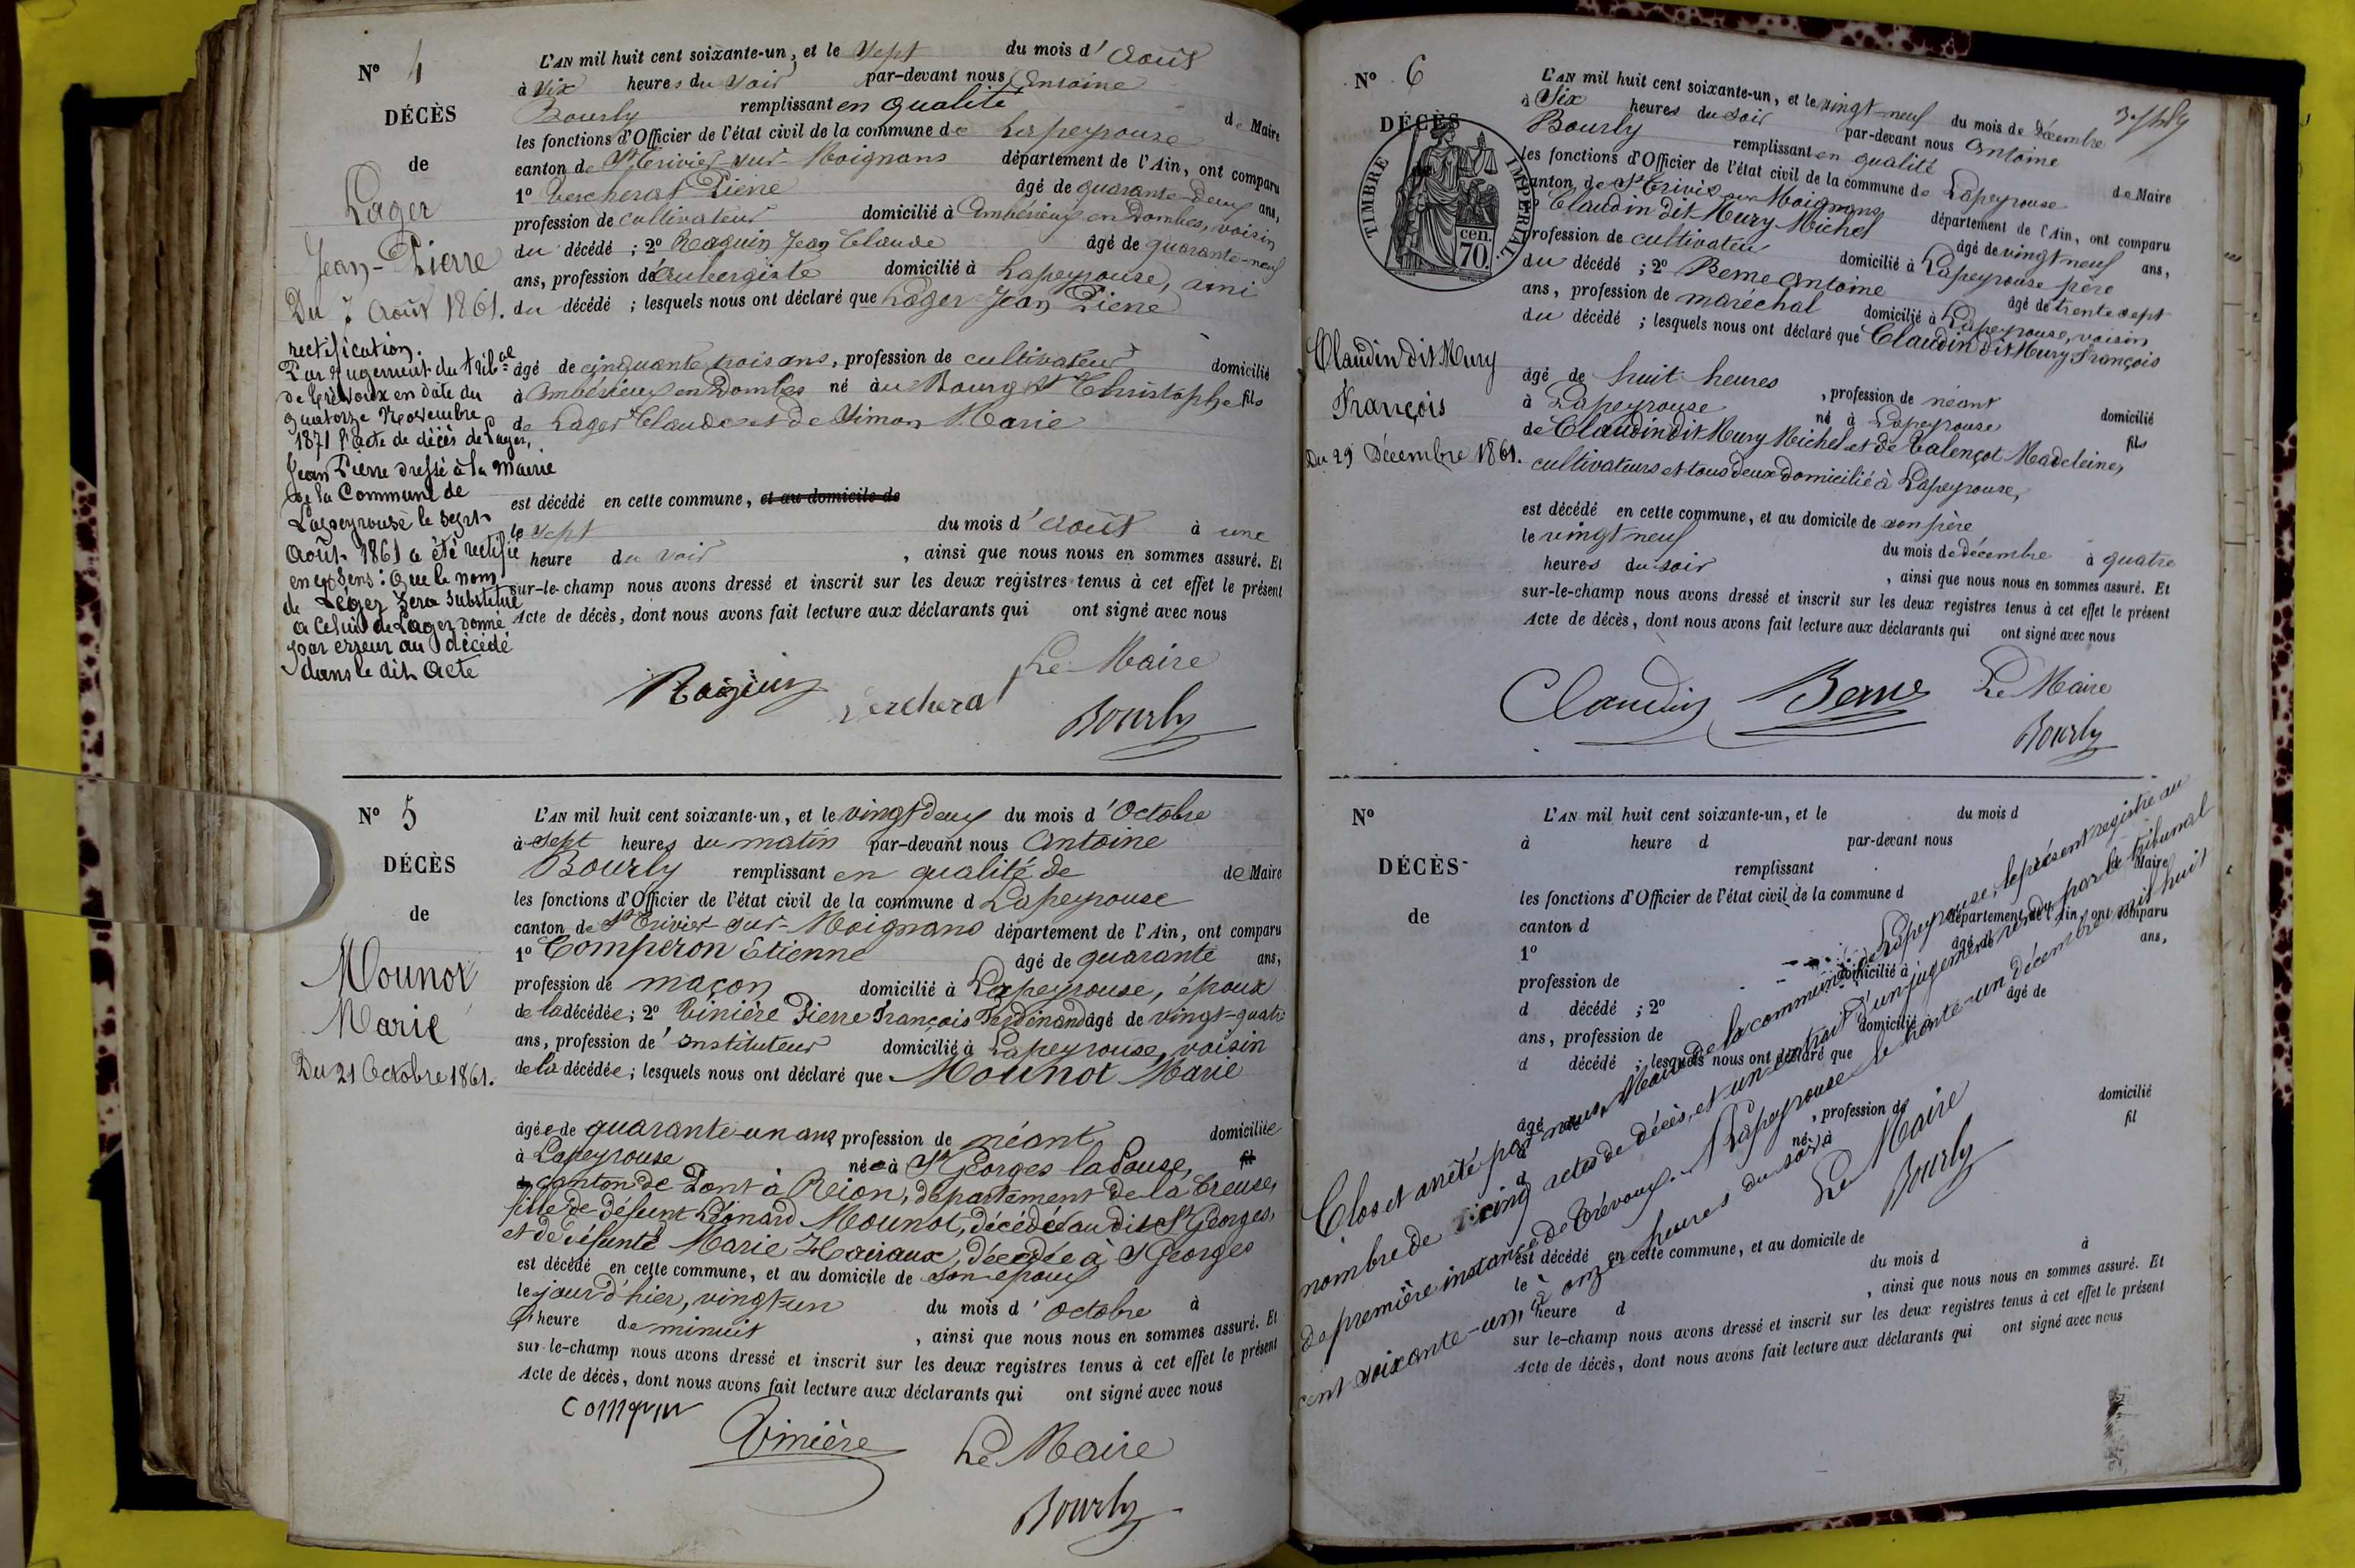 N° 4
DÉCÈS
de
Lager
Jean-Pierre
Du 7 Août 1861.
rectification.
Par Jugement du trib.al
de Trévoux en date du
quatorze Novembre
1871 l'acte de décès de Lager,
Jean Pierre dressé à la Mairie
de la Commune de
Lapeyrouse le sept
Août 1861 a été rectifié
en ce sens : Que le nom
de Léger sera substitué
à celui de Lager donné
par erreur au décédé
dans le dit Acte
L'AN mil huit cent soixante-un, et le Sept du mois d'Août
à Six heures du Soir par-devant nous Antoine
Bourly remplissant en qualité de Maire
les fonctions d'Officier de l'état civil de la commune de Lapeyrouse
canton de St Trivier-sur-Moignans département de l'Ain, ont comparu
1° Vercherat Pierre âgé de quarante-deux ans,
profession de cultivateur domicilié à Ambérieux en Dombes, voisin
du décédé ; 2° Raquin Jean Claude âgé de quarante-neuf
ans, profession d'Aubergiste domicilié à Lapeyrouse, ami
du décédé ; lesquels nous ont déclaré que Lager Jean Pierre
âgé de cinquante trois ans, profession de cultivateur domicilié
à Ambérieux en Dombes né au Bourg St Christophe fils
de Lager Claude et de Simon Marie
est décédé en cette commune, et au domicile de
le Sept du mois d'Août à une
heure du Soir, ainsi que nous nous en sommes assuré. Et
sur-le-champ nous avons dressé et inscrit sur les deux registres tenus à cet effet le présent
Acte de décès, dont nous avons fait lecture aux déclarants qui ont signé avec nous
Le Maire
Verchera
Bourly
N° 5
DÉCÈS
de
Mounot
Marie
Du 21 Octobre 1861.
L'AN mil huit cent soixante-un, et le vingt deux du mois d'Octobre
à Sept heures du matin par-devant nous Antoine
Bourly remplissant en qualité de de Maire
les fonctions d'Officier de l'état civil de la commune d Lapeyrouse
canton de St Trivier-sur-Moignans département de l'Ain, ont comparu
1° Comperon Etienne âgé de quarante ans,
profession de maçon domicilié à Lapeyrouse, époux
de la décédée ; 2° Vinière Pierre François Ferdinand âgé de vingt-quatre
ans, profession d'Instituteur domicilié à Lapeyrouse, voisin
de la décédée ; lesquels nous ont déclaré que Mounot Marie
âgée de quarante-un ans profession de néant domiciliée
à Lapeyrouse née à St Georges la Pouse, fil
canton de Pont à Reion, département de la Creuse,
fille de défunt Léonard Mounot, décédé au dit St Georges,
et de défunte Marie décédée à St Georges
est décédé en cette commune, et au domicile de son époux
le jour d'hier, vingt-un du mois d'Octobre à
l'heure de minuit, ainsi que nous nous en sommes assuré. Et
sur-le-champ nous avons dressé et inscrit sur les deux registres tenus à cet effet le présent
Acte de décès, dont nous avons fait lecture aux déclarants qui ont signé avec nous
Vinière Le Maire
Bourly
N° 6
DÉCÈS
TIMBRE IMPÉRIAL.
cen.
70.
Claudin dit Mury
François
Du 29 Décembre 1861.
L'AN mil huit cent soixante-un, et le vingt neuf du mois de Décembre
à Six heures du soir par-devant nous Antoine
Bourly remplissant en qualité de Maire
les fonctions d'Officier de l'état civil de la commune de Lapeyrouse
canton de St Trivier sur Moignans département de l'Ain, ont comparu
Claudin dit Mury Michel âgé de vingt neuf ans,
profession de cultivateur domicilié à Lapeyrouse père
du décédé ; 2° Berne Antoine âgé de trente sept
ans, profession de maréchal domicilié à Lapeyrouse, voisin
du décédé ; lesquels nous ont déclaré que Claudin dit Mury François
âgé de huit heures, profession de néant domicilié
à Lapeyrouse né à Lapeyrouse fils
de Claudin dit Mury Michel et de Valençot Madeleine,
cultivateurs et tous deux domicilié à Lapeyrouse,
est décédé en cette commune, et au domicile de son père
le vingt neuf du mois de décembre à quatre
heures du soir, ainsi que nous nous en sommes assuré. Et
sur-le-champ nous avons dressé et inscrit sur les deux registres tenus à cet effet le présent
Acte de décès, dont nous avons fait lecture aux déclarants qui ont signé avec nous
Claudin Berne Le Maire
Bourly
N°
DÉCÈS
de
L'AN mil huit cent soixante-un, et le du mois d
à heure d par-devant nous
remplissant Maire
les fonctions d'Officier de l'état civil de la commune d
canton d département de l'Ain, ont comparu
1° âgé de ans,
profession de domicilié à
d décédé ; 2° âgé de
ans, profession de domicilié à
d décédé ; lesquels nous ont déclaré que
âgé de , profession de domicilié
à né à fil
d
est décédé en cette commune, et au domicile de
le du mois d à
heure d , ainsi que nous nous en sommes assuré. Et
sur le-champ nous avons dressé et inscrit sur les deux registres tenus à cet effet le présent
Acte de décès, dont nous avons fait lecture aux déclarants qui ont signé avec nous
Clos et arrêté par nous, Maire de la commune de Lapeyrouse, le présent registre au
nombre de cinq actes de décès, et un extrait d'un jugement rendu par le tribunal
de première instance de Trévoux. Lapeyrouse le trente-un décembre mil huit
cent soixante-un, à onze heures du soir.
Le Maire
Bourly